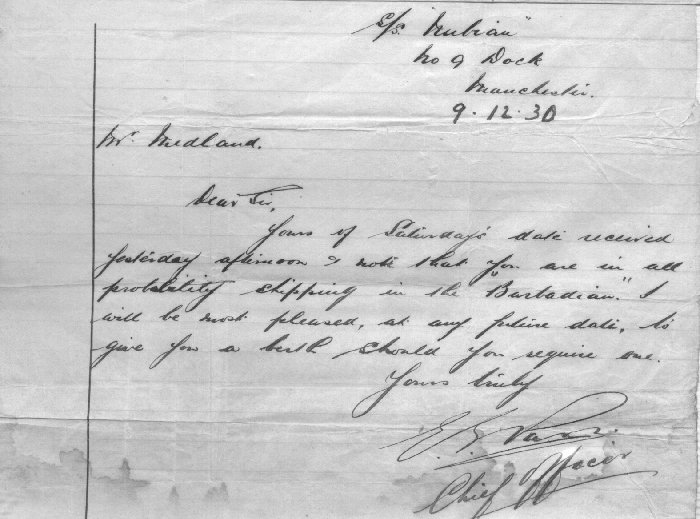 S/S. "Nubian"
No 9 Dock
Manchester.
9.12.30
Mr Medland.
Dear Sir,
Yours of Saturday's date received
yesterday afternoon & note that you are in all
probability shipping in the "Barbadian". I
will be most pleased, at any future date, to
give you a berth should you require one.
Yours truly
Chief Officer